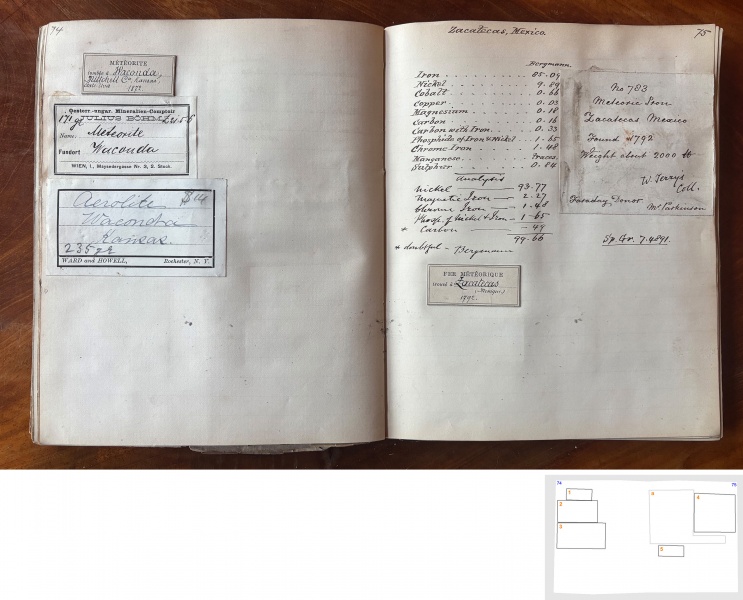 74
MÉTÉORITE
tombée à Waconda,
Mitchell Co, Kansas,
1873
Oesterr.-ungar. Mineralien-Comptoir
171 gr JULIUS BÖHM
Name: Meteorite
Fundort Waconda
WIEN, I., Maysedergasse Nr. 3, 2. Stock.
Aerolite $14
Waconda
Kansas.
235 gr
WARD and HOWELL, Rochester, N. Y.
Zacatecas, Mexico. 75
Bergmann.
Iron 85.09
Nickel 9.89
Cobalt 0.66
Copper 0.03
Magnesium 0.18
Carbon 0.16
Carbon with Iron 0.33
Phosphide of Iron & Nickel 1.65
Chrome Iron 1.48
Manganese traces.
Sulphur 0.84
Analysis
Nickel 93.77
Magnetic Iron 2.27
Chrome Iron 1.48
Phosp. of Nickel & Iron 1.65
* Carbon 49
99.66
* doubtful - Bergmann
No 783
Meteoric Iron
Zacatecas Mexico
Found 1792
Weight about 2000 lb
W. Terrys
Coll.
Faraday Donor
Mr Parkinson
Sp. Gr. 7.4891.
FER MÉTÉORIQUE
trouvé à Zacatecas
(Mexique)
1792.
74
75
1
2
3
4
5